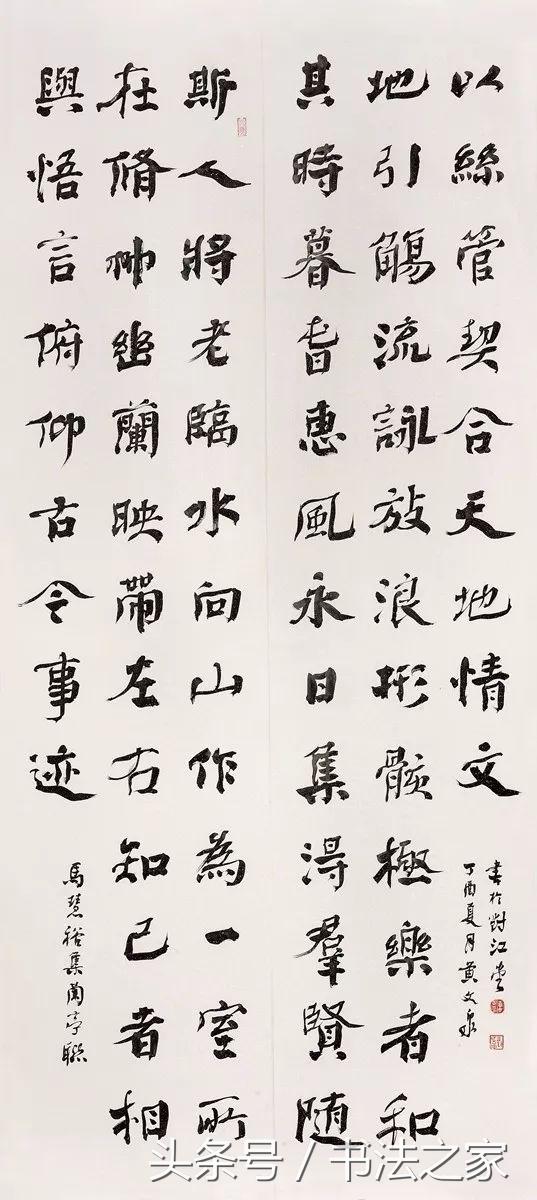 斯人將老臨水向山作為一室所
在脩竹幽蘭映帶左右知己者相
與悟言俯仰古今事迹
馬慧裕集蘭亭聯
其時暮旾惠風永日集得羣賢隨
地引觴流詠放浪形骸極樂者和
以絲管契合天地情文
丁酉夏月黃文泉
書於對江堂
头条号 / 书法之家